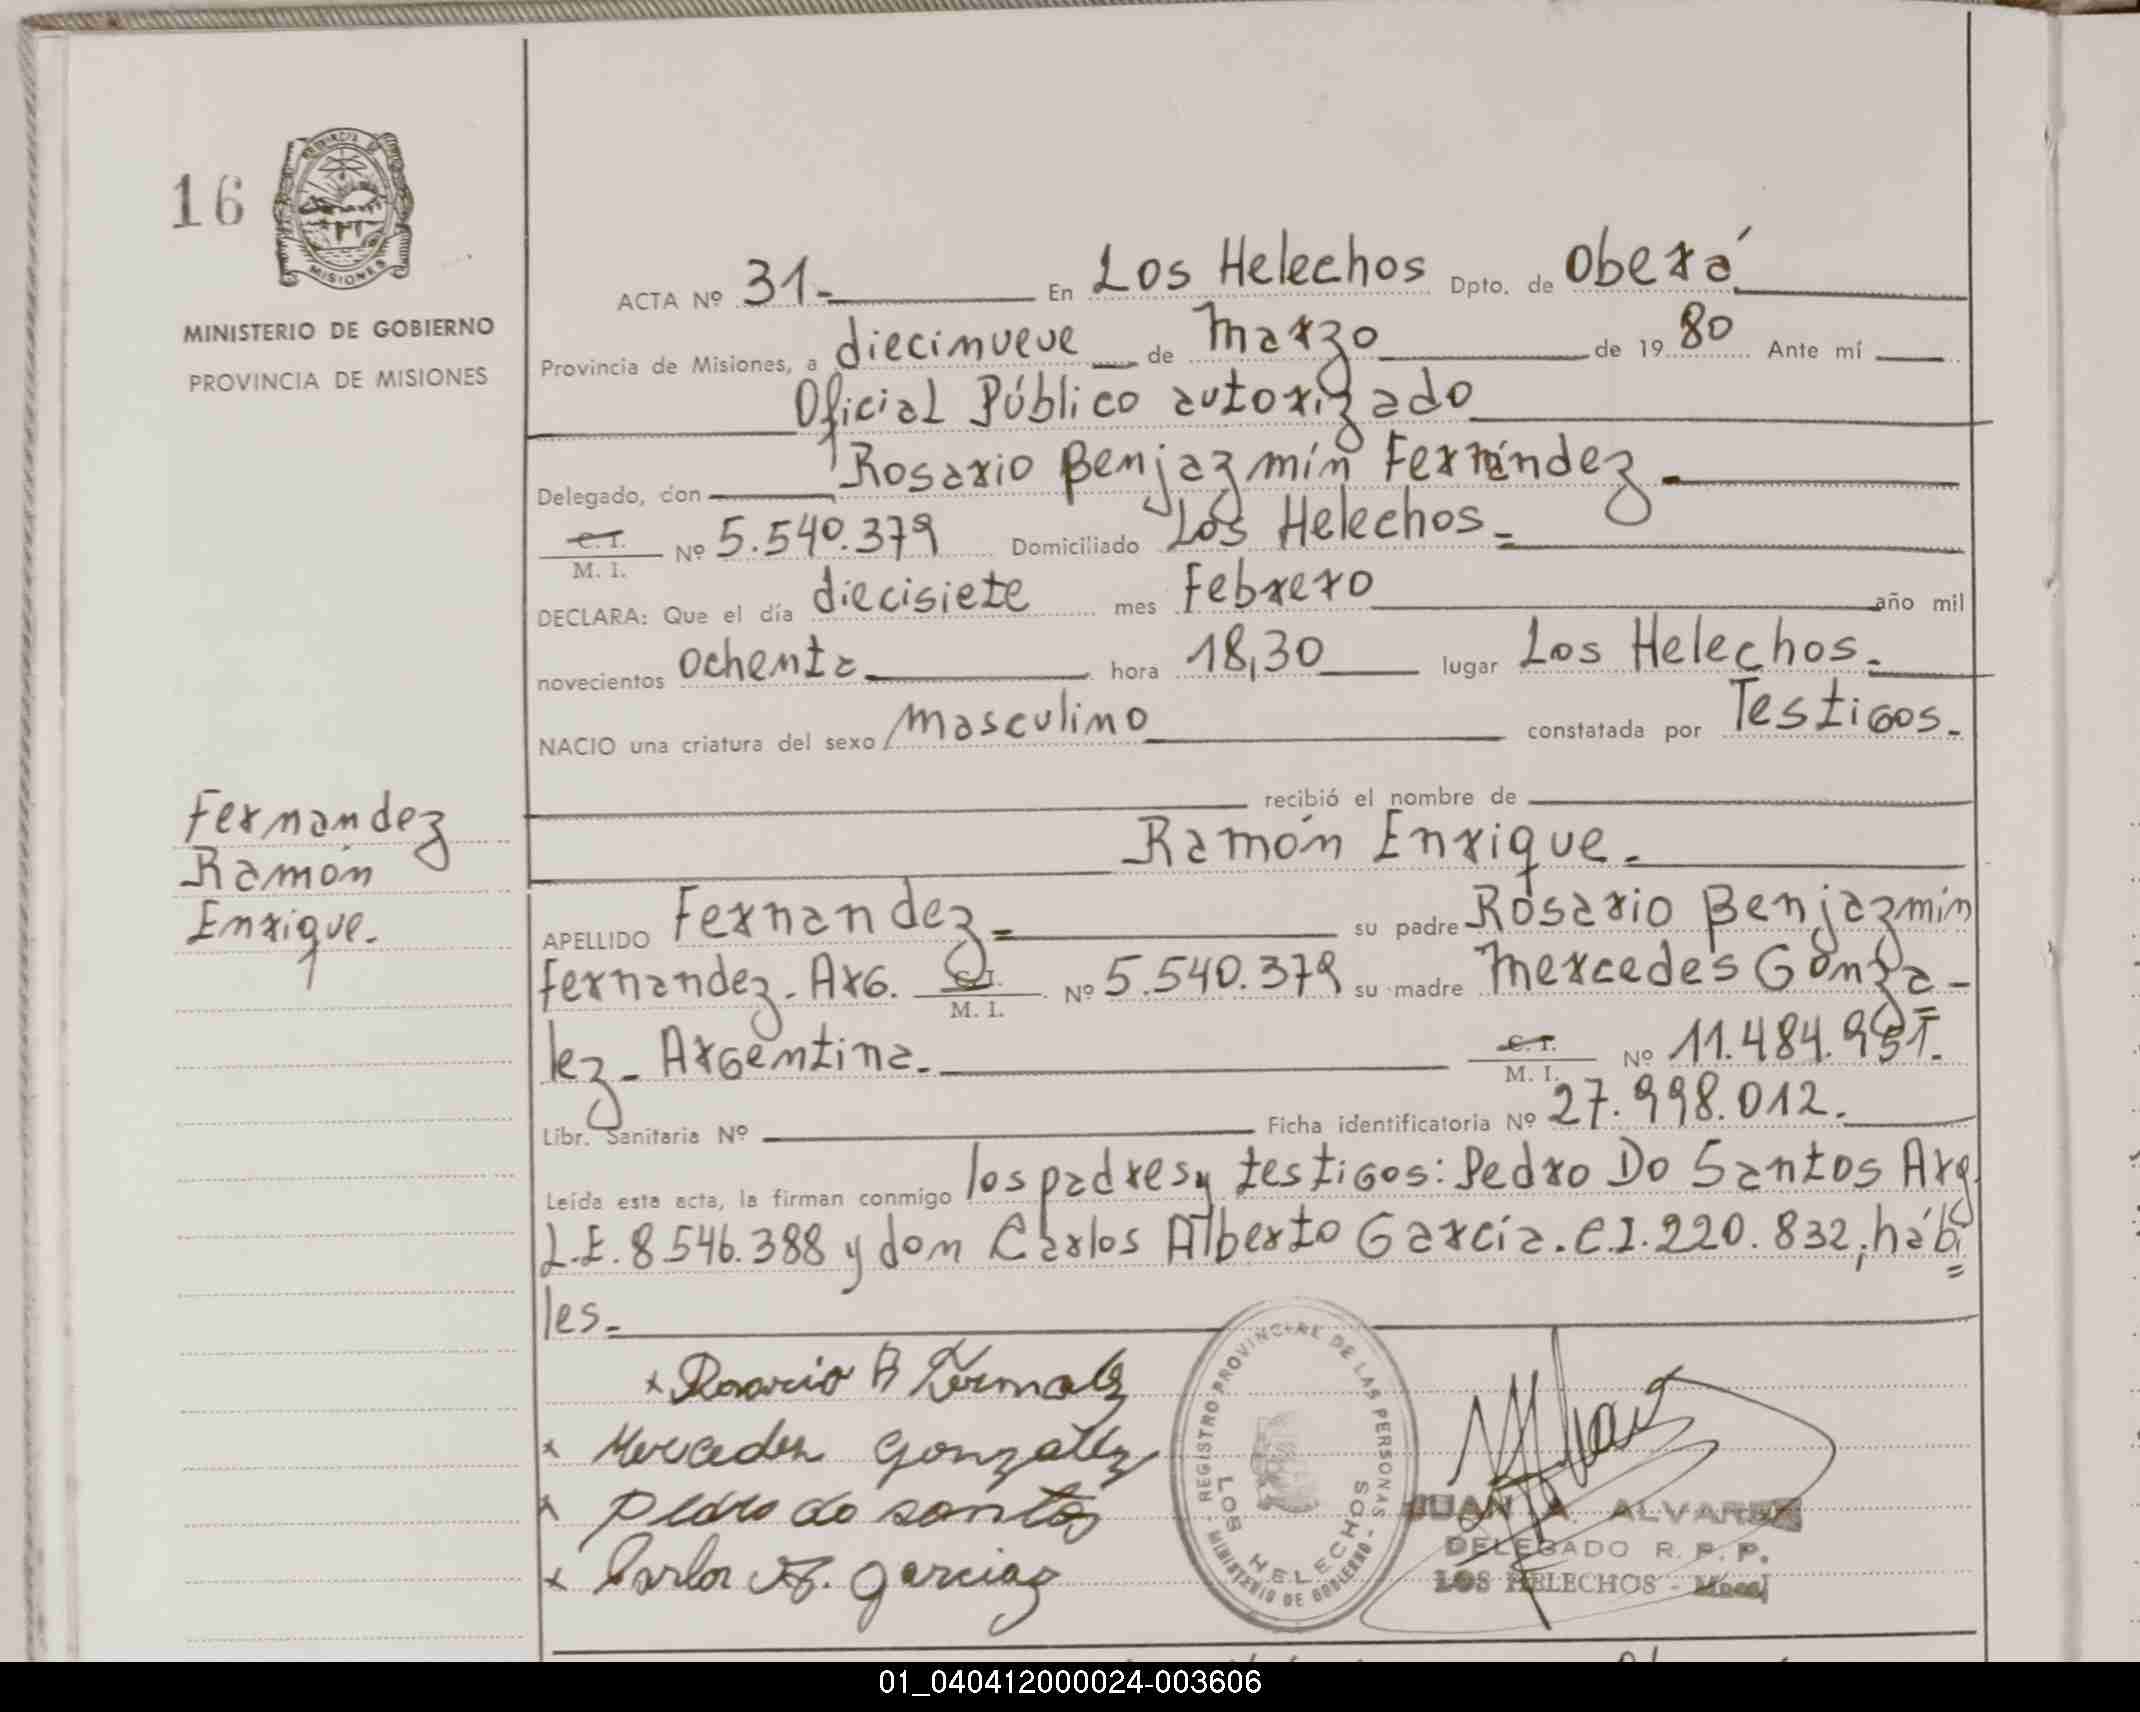 16
PROVINCIA DE
MISIONES
MINISTERIO DE GOBIERNO
PROVINCIA DE MISIONES
ACTA Nº 31.- En Los Helechos Dpto. de Oberá
Provincia de Misiones, a diecinueve de Marzo de 1980 Ante mí
Oficial Público autorizado
Delegado, don Rosario Benjazmín Fernández.-
C. I.
M. I. Nº 5.540.379 Domiciliado Los Helechos.=
DECLARA: Que el día diecisiete mes Febrero año mil
novecientos ochenta hora 18,30 lugar Los Helechos.-
NACIO una criatura del sexo masculino constatada por Testigos.-
recibió el nombre de
Ramón Enrique.-
Fernandez
Ramón
Enrique.-
APELLIDO Fernandez.= su padre Rosario Benjazmín
Fernandez.- Arg. C. I.
M. I. Nº 5.540.379 su madre Mercedes Gonza-
lez.- Argentina.- C. I.
M. I. Nº 11.484.951.-
Libr. Sanitaria Nº Ficha identificatoria Nº 27.998.012.
Leída esta acta, la firman conmigo los padres y testigos: Pedro Do Santos Arg.
L.E. 8.546.388 y don Carlos Alberto García. C.I. 220.832, hábi=
les.-
x Rosario B
x Mercedes Gonzalez
x Pedro do santos
x Carlos A. Garcia
REGISTRO PROVINCIAL DE LAS PERSONAS
LOS HELECHOS
MINISTERIO DE GOBIERNO
JUAN A. ALVAREZ
DELEGADO R. P. P.
LOS HELECHOS -
01_040412000024-003606